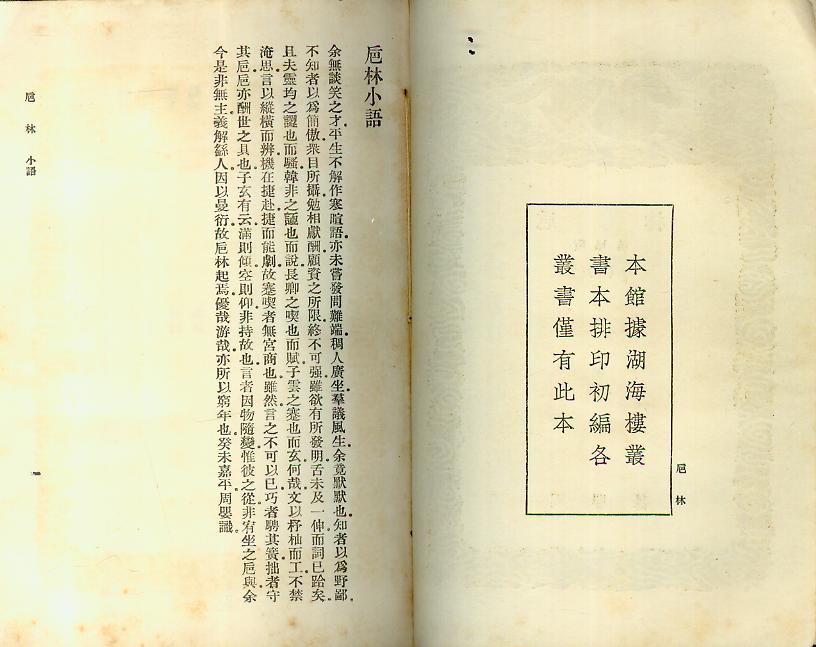 本館據湖海樓叢
書本排印初編各
叢書僅有此本
巵林
巵林小語
余無談笑之才平生不解作寒暄語亦未嘗發問難端稠人廣坐羣議風生余竟默默也知者以爲野鄙
不知者以爲簡傲衆目所攝勉相獻酬顧賓之所限終不可强雖欲有所發明舌未及一伸而詞已跲矣
且夫靈均之讒也而騷韓非之譅也而說長卿之喫也而賦子雲之蹇也而玄何哉文以杼柚而工不禁
淹思言以縱橫而辨機在捷赴捷而能劇故蹇喫者無宮商也雖然言之不可以已巧者騁其簧拙者守
其巵巵亦酬世之具也子玄有云滿則傾空則仰非持故也言者因物隨變惟彼之從非宥坐之巵與余
今是非無主義解繇人因以曼衍故巵林起焉優哉游哉亦所以窮年也癸未嘉平周嬰識
巵林 小語